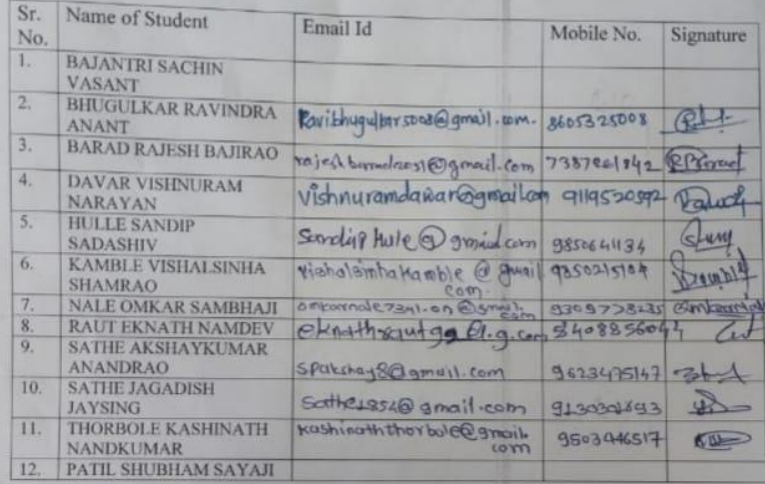 Sr. No. Name of Student Email Id Mobile No. Signature
1. BAJANTRI SACHIN VASANT
2. BHUGULKAR RAVINDRA ANANT Ravibhugulkar5008@gmail.com. 8605325008
3. BARAD RAJESH BAJIRAO @gmail.com
4. DAVAR VISHNURAM NARAYAN vishnuramdawar@gmail.com 9119520592
5. HULLE SANDIP SADASHIV Sandip hule@gmail.com 9850641134
6. KAMBLE VISHALSINHA SHAMRAO vishalsinhakamble @ gmail com. 9850215104
7. NALE OMKAR SAMBHAJI
8. RAUT EKNATH NAMDEV 5408856044
9. SATHE AKSHAYKUMAR ANANDRAO spakshay8@gmail.com 9623475147
10. SATHE JAGADISH JAYSING Sathe1852@gmail.com
11. THORBOLE KASHINATH NANDKUMAR kashinaththorbole@gmail. com 9503446517
12. PATIL SHUBHAM SAYAJI